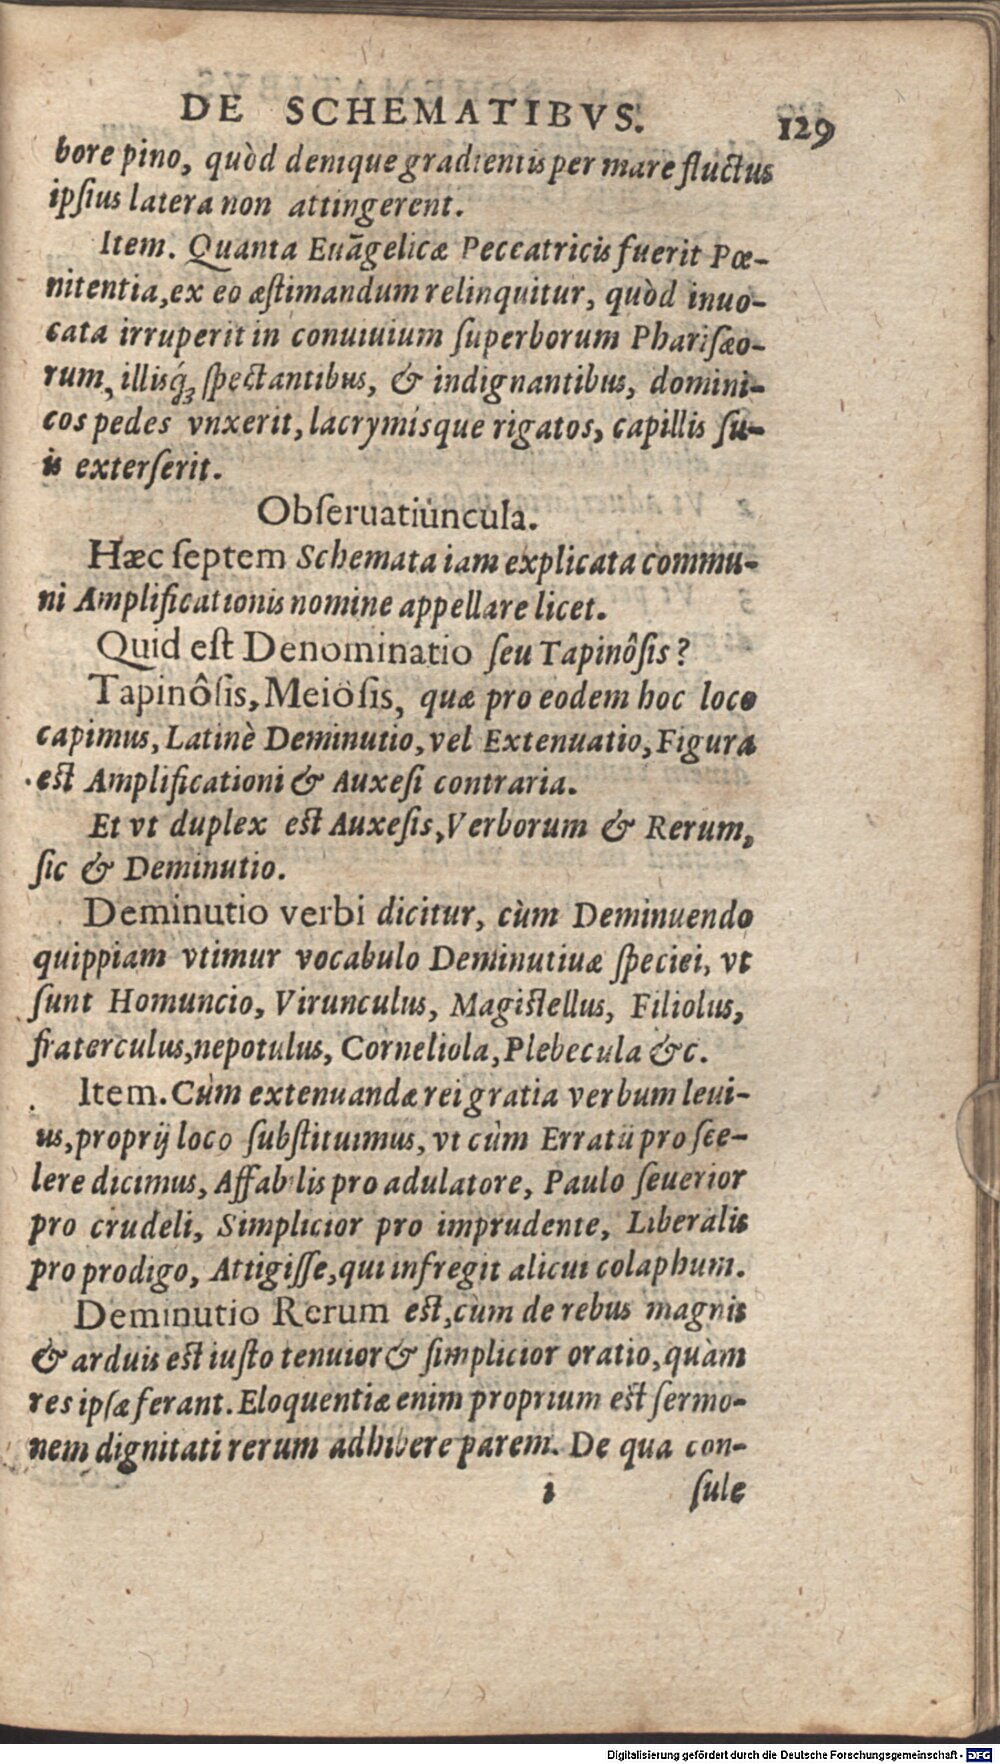 DE SCHEMATIBVS. 129
bore pino, quòd denique gradientis per mare fluctus
ipſius latera non attingerent.
Item. Quanta Euãgelicæ Peccatricis fuerit Pœ-
nitentia, ex eo æſtimandum relinquitur, quòd inuo-
cata irruperit in conuiuium ſuperborum Phariſæo-
rum, illisq́ꝫ ſpectantibus, & indignantibus, domini-
cos pedes vnxerit, lacrymisque rigatos, capillis ſu-
is exterſerit.
Obſeruatiuncula.
Hæc ſeptem Schemata iam explicata commu-
ni Amplificationis nomine appellare licet.
Quid eſt Denominatio ſeu Tapinôſis?
Tapinôſis, Meiôſis, quæ pro eodem hoc loco
capimus, Latinè Deminutio, vel Extenuatio, Figura
eſt Amplificationi & Auxeſi contraria.
Et vt duplex eſt Auxeſis, Verborum & Rerum,
ſic & Deminutio.
Deminutio verbi dicitur, cùm Deminuendo
quippiam vtimur vocabulo Deminutiuæ ſpeciei, vt
ſunt Homuncio, Virunculus, Magiſtellus, Filiolus,
fraterculus, nepotulus, Corneliola, Plebecula &c.
Item. Cùm extenuandæ rei gratia verbum leui-
us, proprij loco ſubſtituimus, vt cùm Erratũ pro ſce-
lere dicimus, Affabilis pro adulatore, Paulo ſeuerior
pro crudeli, Simplicior pro imprudente, Liberalis
pro prodigo, Attigiſſe, qui infregit alicui colaphum.
Deminutio Rerum eſt, cùm de rebus magnis
& arduis eſt iuſto tenuior & ſimplicior oratio, quàm
res ipſæ ferant. Eloquentiæ enim proprium eſt ſermo-
nem dignitati rerum adhibere parem. De qua con-
i ſule
Digitalisierung gefördert durch die Deutsche Forschungsgemeinschaft - DFG